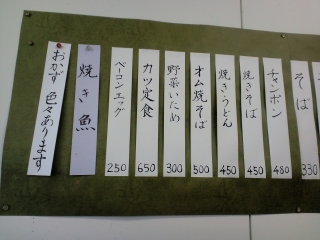 おかず色々あります
焼き魚
ベーコンエッグ 250
カツ定食 650
野菜いため 300
オム焼そば 500
焼きうどん 450
焼きそば 450
チャンポン 480
そば 330